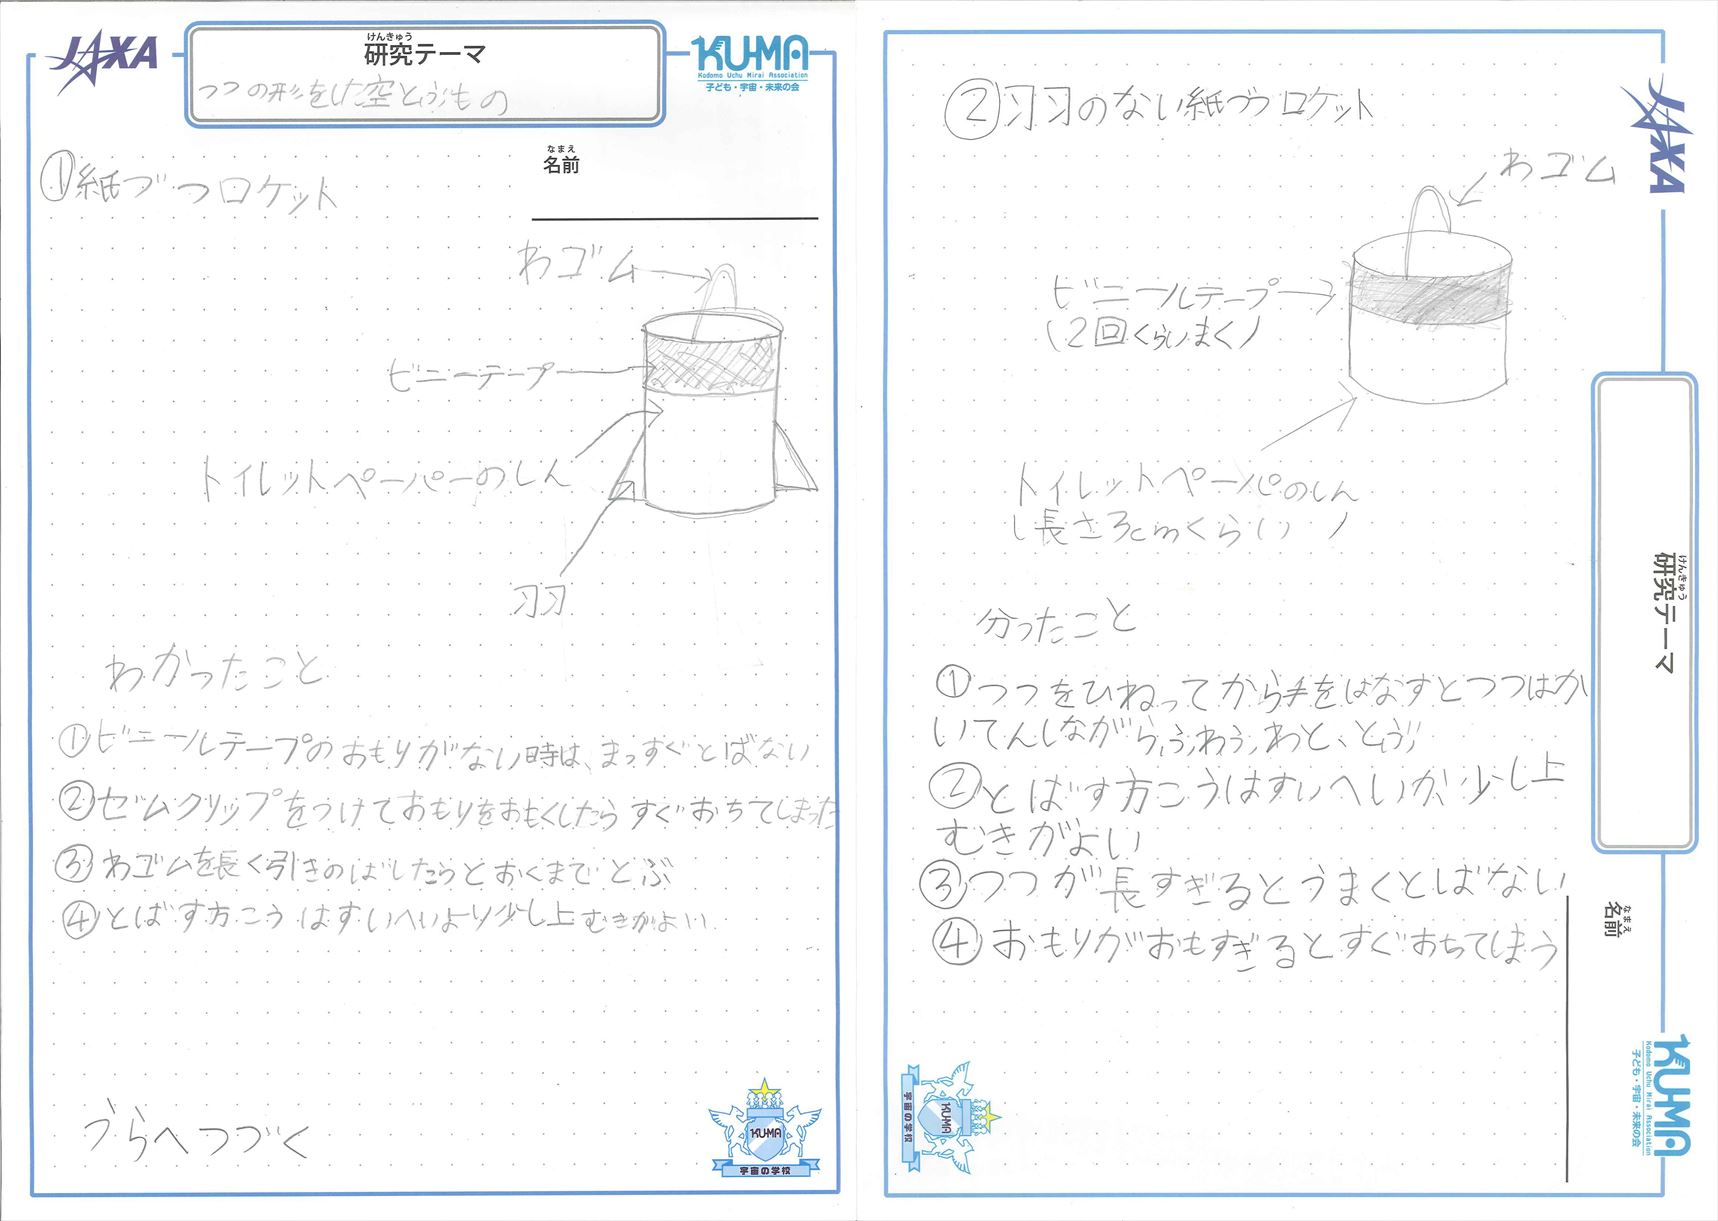 JAXA
けんきゅう
研究テーマ
つつの形をした空とぶもの
KU-MA
Kodomo Uchu Mirai Association
子ども・宇宙・未来の会
なまえ
名前
①紙づつロケット
わゴム
ビニーテープ
トイレットペーパーのしん
羽
わかったこと
①ビニールテープのおもりがない時は、まっすぐとばない
②ゼムクリップをつけておもりをおもくしたらすぐおちてしまった
③わゴムを長く引きのばしたらとおくまでとぶ
④とばす方こうはすいへいより少し上むきがよい
うらへつづく
KU-MA
宇宙の学校
②羽のない紙づつロケット
わゴム
ビニールテープ
(2回くらいまく)
トイレットペーパのしん
(長さ3cmくらい)
分ったこと
①つつをひねってから手をはなすとつつはか
いてんしながら、ふわふわと、とぶ
②とばす方こうはすいへいか、少し上
むきがよい
③つつが長すぎるとうまくとばない
④おもりがおもすぎるとすぐおちてしまう
JAXA
けんきゅう
研究テーマ
なまえ
名前
KU-MA
Kodomo Uchu Mirai Association
子ども・宇宙・未来の会
KU-MA
宇宙の学校